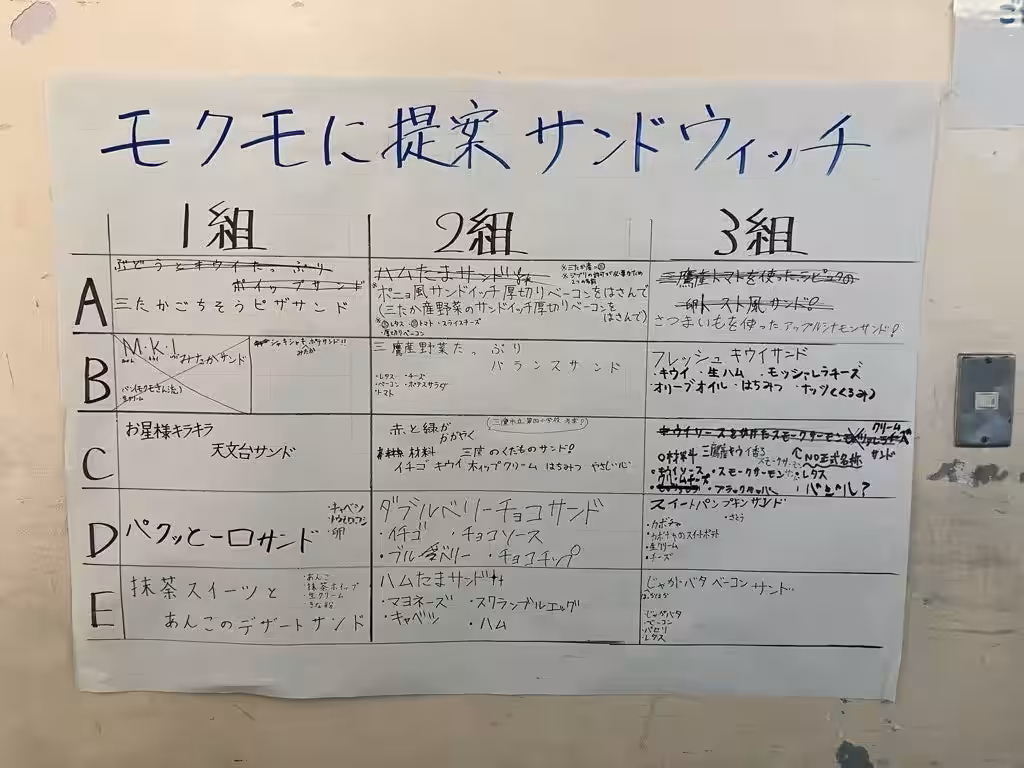 モクモに提案サンドウィッチ
1組 2組 3組
A
ぶどうとキウイたっぷり
ホイップサンド
三たかごちそうピザサンド
ハムたまサンド
ポニョ風サンドイッチ厚切りベーコンをはさんで
(三たか産野菜のサンドイッチ厚切りベーコンを
はさんで)
レタス トマト ・スライスチーズ
・厚切りベーコン
三鷹産トマトを使った
トースト風サンド!
さつまいもを使ったアップルシナモンサンド!
B
M.K.I.
みたかサンド
パン(モクモさん流)
生クリーム
シャキシャキ ポテサンド!!
みたか
三鷹産野菜たっぷり
バランスサンド
・レタス ・チーズ
・ベーコン ・ポテトサラダ
・トマト
フレッシュキウイサンド
・キウイ ・生ハム ・モッツァレラチーズ
・オリーブオイル ・はちみつ ・ナッツ(くるみ)
C
お星様キラキラ
天文台サンド
赤と緑が
かがやく
材料 三鷹のくだものサンド!
イチゴ キウイ ホイップクリーム はちみつ やさしい心
キウイソースをかけたスモークサーモン
クリーム
チーズ
サンド
○材料
三鷹産キウイ香る
NO正式名称
・キウイソース ・スモークサーモン ・レタス
・ブラックペッパー
・バジル?
D
パクッと一口サンド
・キャベツ
・卵
ダブルベリーチョコサンド
・イチゴ ・チョコソース
・ブルーベリー ・チョコチップ
スイートパンプキンサンド
・カボチャ ・さとう
・カボチャのスイートポテト
・生クリーム
・チーズ
E
抹茶スイーツと
あんこのデザートサンド
・あんこ
・抹茶ホイップ
・生クリーム
・きな粉
ハムたまサンド
・マヨネーズ ・スクランブルエッグ
・キャベツ ・ハム
じゃがバタベーコンサンド
・じゃがバタ
・ベーコン
・パセリ
・レタス